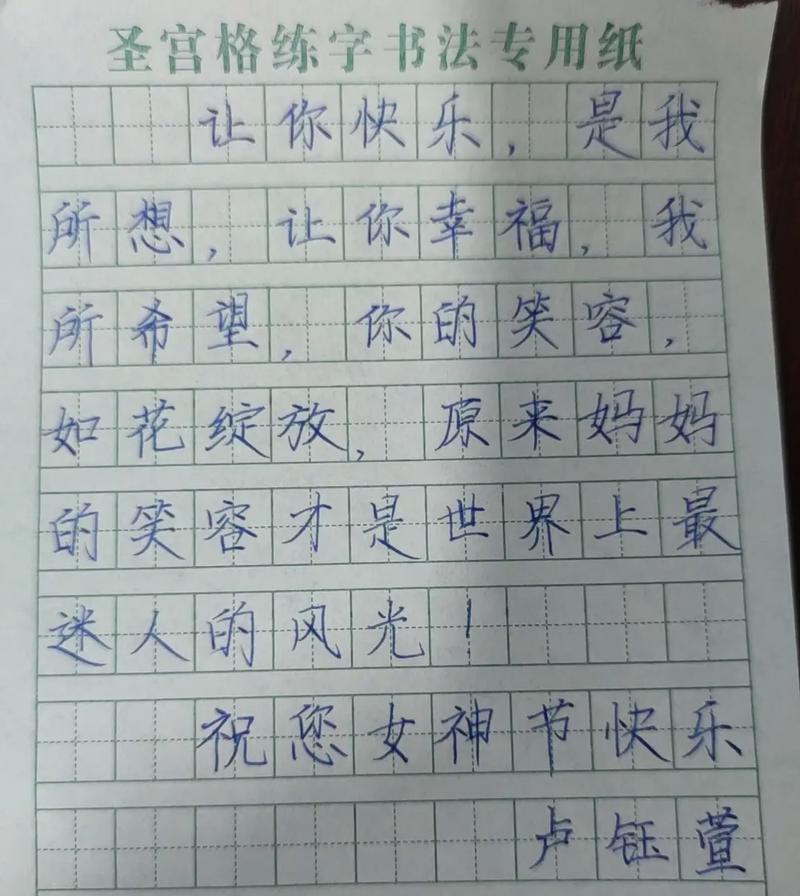 圣宫格练字书法专用纸
让你快乐，是我
所想，让你幸福，我
所希望，你的笑容，
如花绽放，原来妈妈
的笑容才是世界上最
迷人的风光！
祝您女神节快乐
卢钰萱